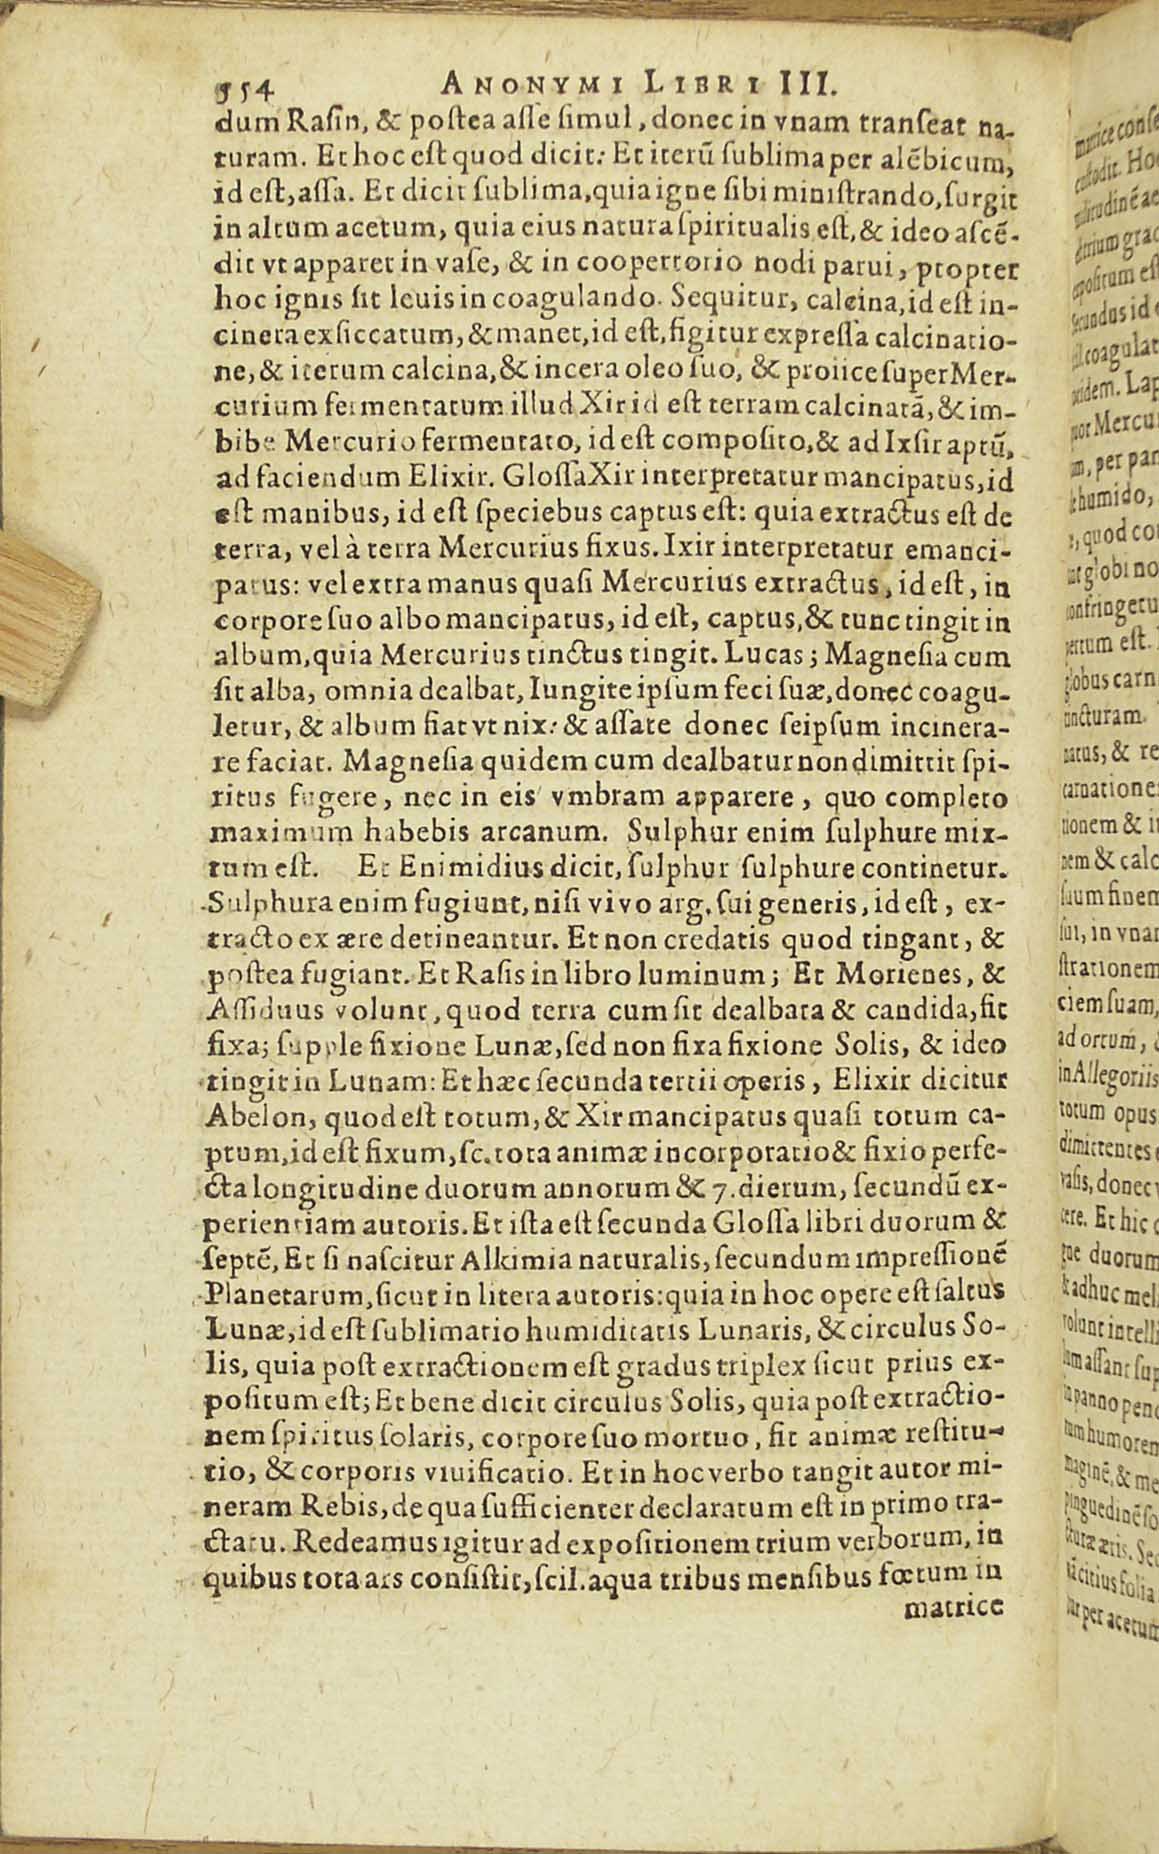 954 ANONYMI LIBRI III.
dum Rasin, & postea asse simul, donec in vnam transeat na-
turam. Et hoc est quod dicit: Et iterū sublima per alēbicum,
id est, assa. Et dicit sublima, quia igne sibi ministrando, surgit
in altum acetum, quia eius natura spiritualis est, & ideo ascē-
dit vt apparet in vase, & in coopertorio nodi parui, propter
hoc ignis sit leuis in coagulando. Sequitur, calcina, id est in-
cinera exsiccatum, & manet, id est, figitur expressa calcinatio-
ne, & iterum calcina, & incera oleo suo, & proiice super Mer-
curium fermentatum illud Xir id est terram calcinatā, & im-
bibe Mercurio fermentato, id est composito, & ad Ixsir aptū,
ad faciendum Elixir. Glossa Xir interpretatur mancipatus, id
est manibus, id est speciebus captus est: quia extractus est de
terra, vel à terra Mercurius fixus. Ixir interpretatur emanci-
patus: vel extra manus quasi Mercurius extractus, id est, in
corpore suo albo mancipatus, id est, captus, & tunc tingit in
album, quia Mercurius tinctus tingit. Lucas; Magnesia cum
sit alba, omnia dealbat, Iungite ipsum feci suæ, donec coagu-
letur, & album fiat vt nix: & assate donec seipsum incinera-
re faciat. Magnesia quidem cum dealbatur non dimittit spi-
ritus fugere, nec in eis vmbram apparere, quo completo
maximum habebis arcanum. Sulphur enim sulphure mix-
tum est. Et Enimidius dicit, sulphur sulphure continetur.
Sulphura enim fugiunt, nisi vivo arg. sui generis, id est, ex-
tracto ex ære detineantur. Et non credatis quod tingant, &
postea fugiant. Et Rasis in libro luminum; Et Morienes, &
Assiduus volunt, quod terra cum sit dealbata & candida, fit
fixa; supple fixione Lunæ, sed non fixa fixione Solis, & ideo
tingit in Lunam: Et hæc secunda tertii operis, Elixir dicitur
Abelon, quod est totum, & Xir mancipatus quasi totum ca-
ptum, id est fixum, sc. tota animæ incorporatio & fixio perfe-
cta longitudine duorum annorum & 7. dierum, secundū ex-
perientiam autoris. Et ista est secunda Glossa libri duorum &
septē, Et si nascitur Alkimia naturalis, secundum impressionē
Planetarum, sicut in litera autoris: quia in hoc opere est saltus
Lunæ, id est sublimatio humiditatis Lunaris, & circulus So-
lis, quia post extractionem est gradus triplex sicut prius ex-
positum est; Et bene dicit circulus Solis, quia post extractio-
nem spiritus solaris, corpore suo mortuo, fit animæ restitu-
tio, & corporis viuificatio. Et in hoc verbo tangit autor mi-
neram Rebis, de qua sufficienter declaratum est in primo tra-
ctatu. Redeamus igitur ad expositionem trium verborum, in
quibus tota ars consistit, scil. aqua tribus mensibus fœtum in
matrice